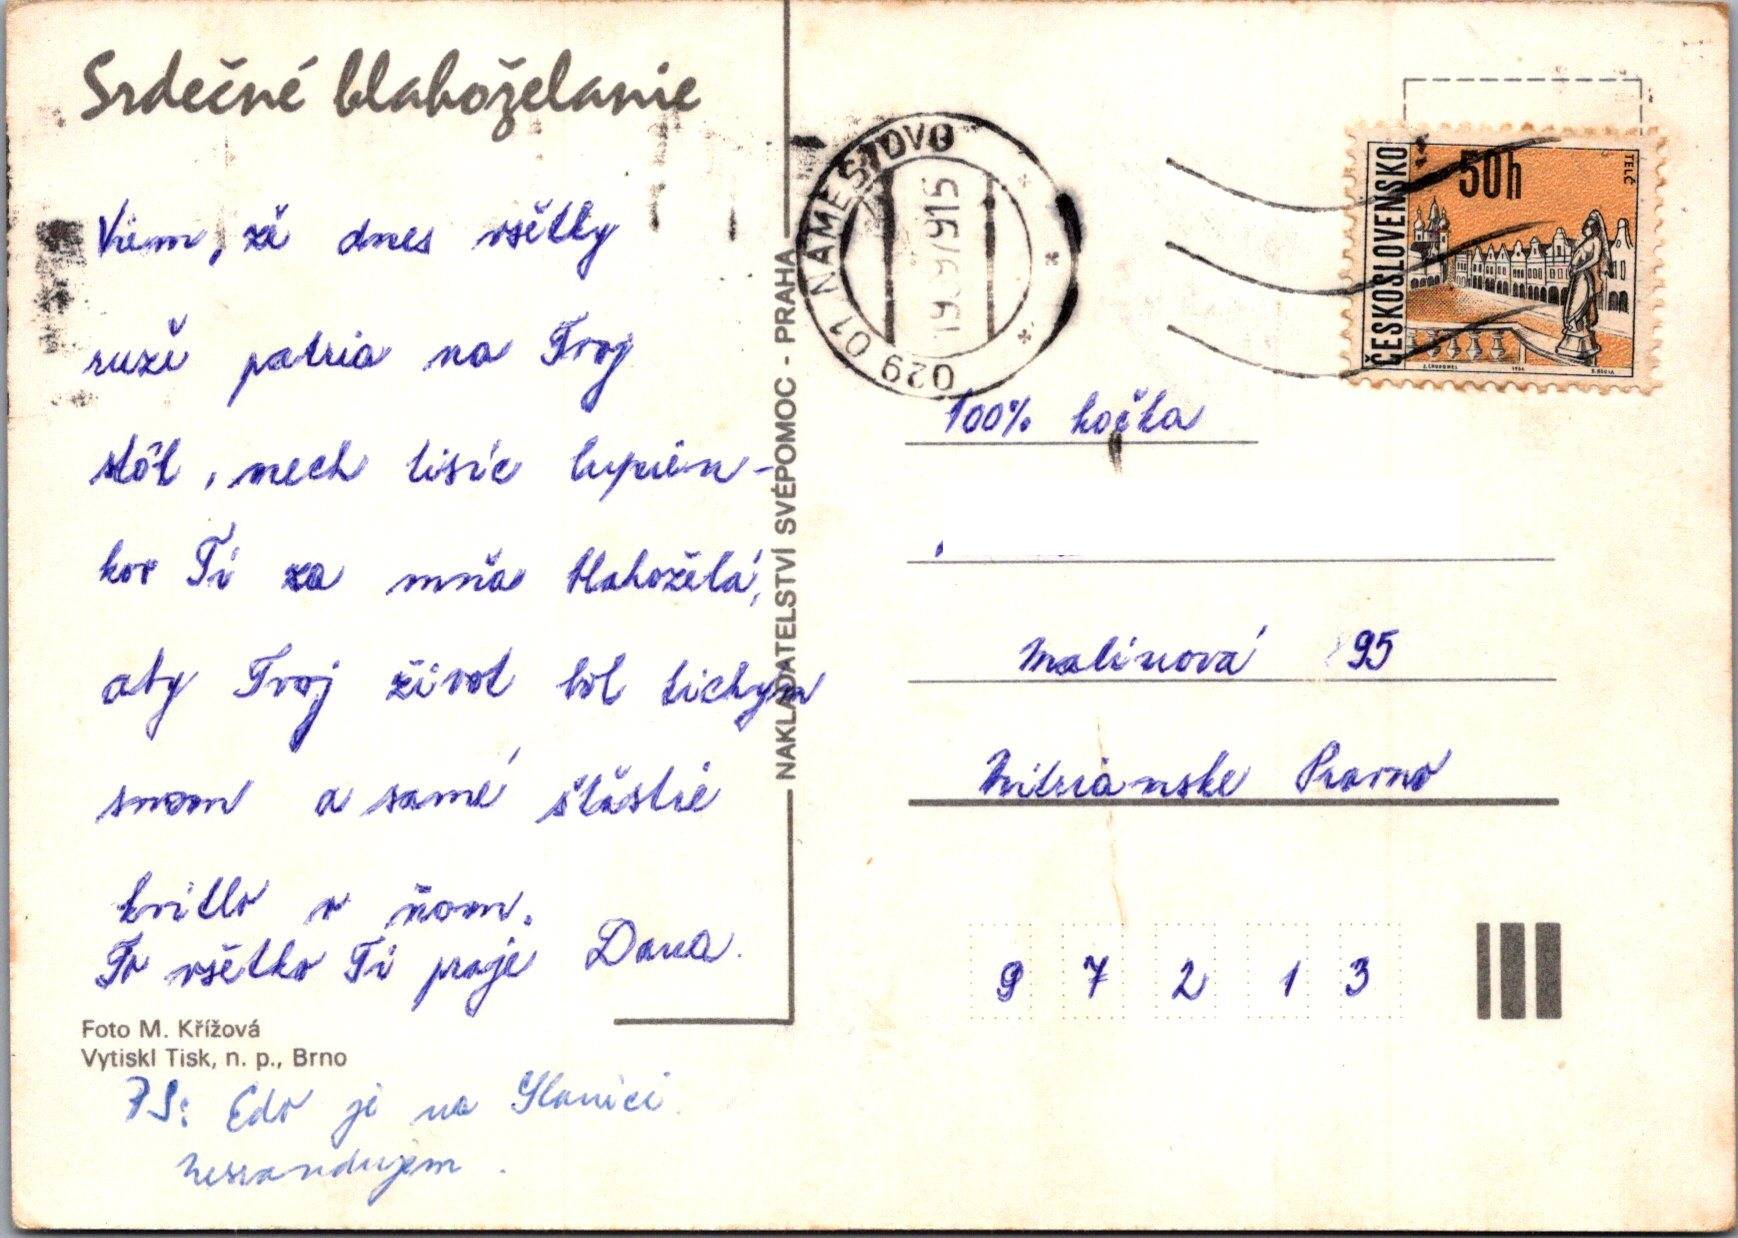 Srdečné blahoželanie
Viem, že dnes všetky
ruže patria na Tvoj
stôl, nech tisíc lupien-
kov Ti za mňa blahoželá,
aby Tvoj život bol tichým
snom a samé šťastie
kvitlo v ňom.
To všetko Ti praje Dana.
Foto M. Křížová
Vytiskl Tisk, n. p., Brno
PS: Edo je na Slanici
nesrandujem.
NAKLADATELSTVÍ SVÉPOMOC - PRAHA
029 01 NÁMESTOVO
ČESKOSLOVENSKO
50h
TELČ
100% kočka
Malinová 95
Nitrianske Pravno
9 7 2 1 3